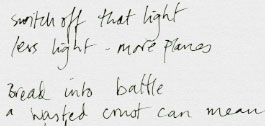 switch off that light
less light - more planes
Break into battle
a wasted coast can mean